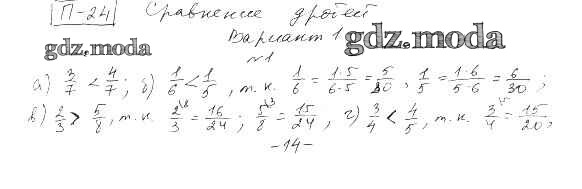 П-24 Сравнение дробей
Вариант 1
gdz.moda gdz.moda
№1
а) 3/7 < 4/7; б) 1/6 < 1/5, т.к. 1/6 = 1·5/6·5 = 5/30, 1/5 = 1·6/5·6 = 6/30;
в) 2/3 > 5/8, т.к. 2/3 \8 = 16/24; 5/8 \3 = 15/24, г) 3/4 < 4/5, т.к. 3/4 \5 = 15/20,
-14-